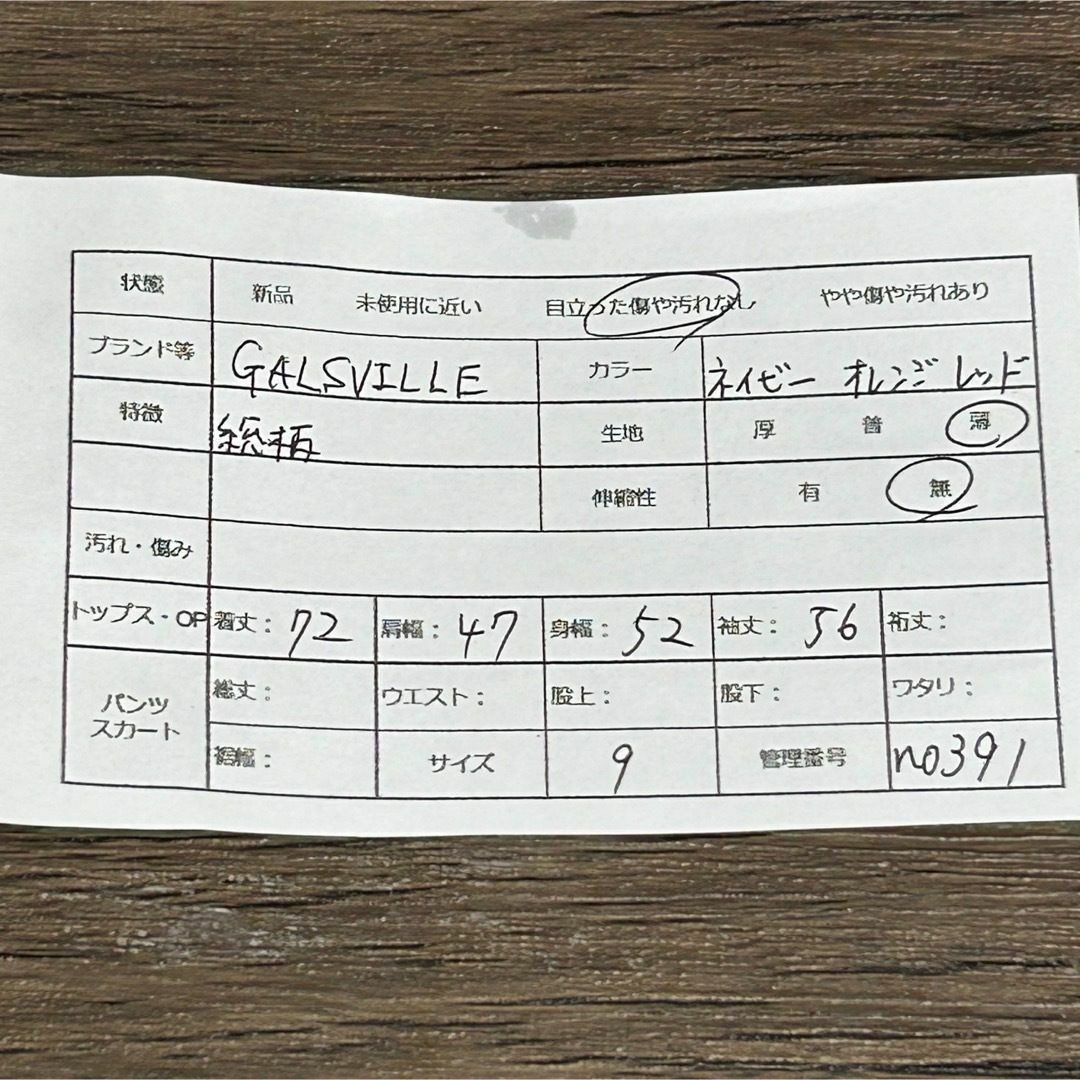 状態 新品 未使用に近い 目立った傷や汚れなし やや傷や汚れあり
ブランド等 GALSVILLE カラー ネイビー オレンジ レッド
特徴 総柄 生地 厚 普 薄
伸縮性 有 無
汚れ・傷み
トップス・OP 着丈: 72 肩幅: 47 身幅: 52 袖丈: 56 裄丈:
パンツ スカート 総丈: ウエスト: 股上: 股下: ワタリ:
裾幅: サイズ 9 管理番号 no391